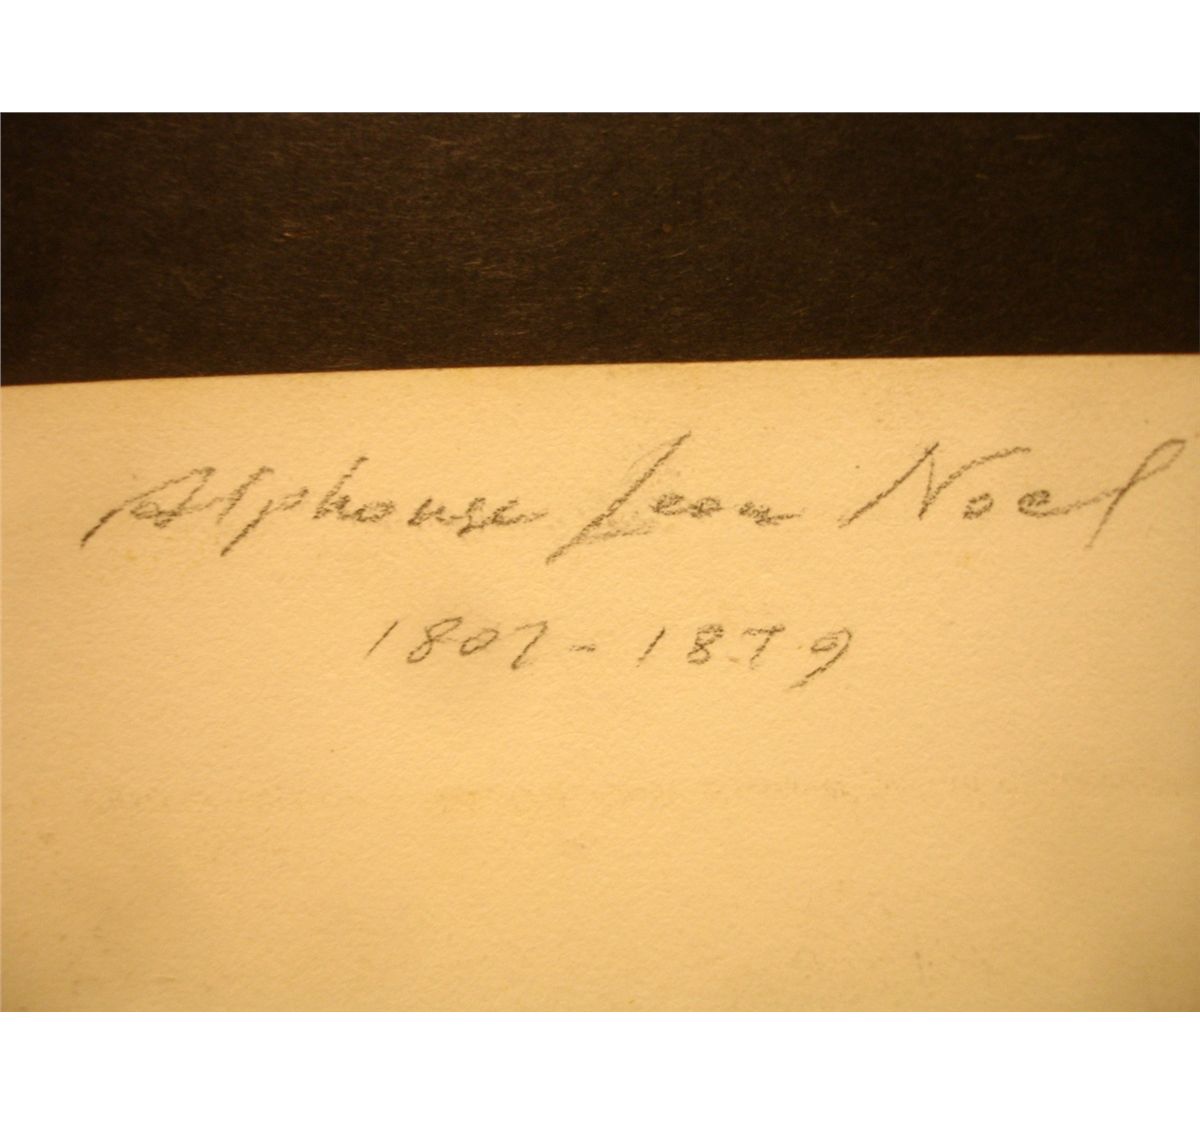 Alphonse Leon Noel
1807-1879